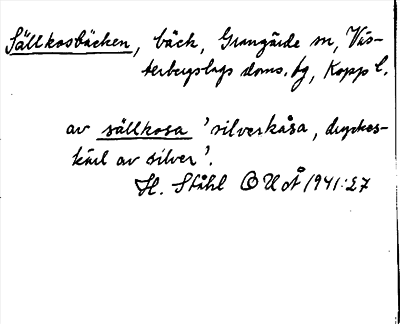 Sällkosbäcken, bäck, Grangärde sn, Väs-
terbergslags doms. hg, Kopp l.
av sällkosa 'silverkåsa, dryckes-
kärl av silver'.
H. Ståhl OUÅ 1941:27